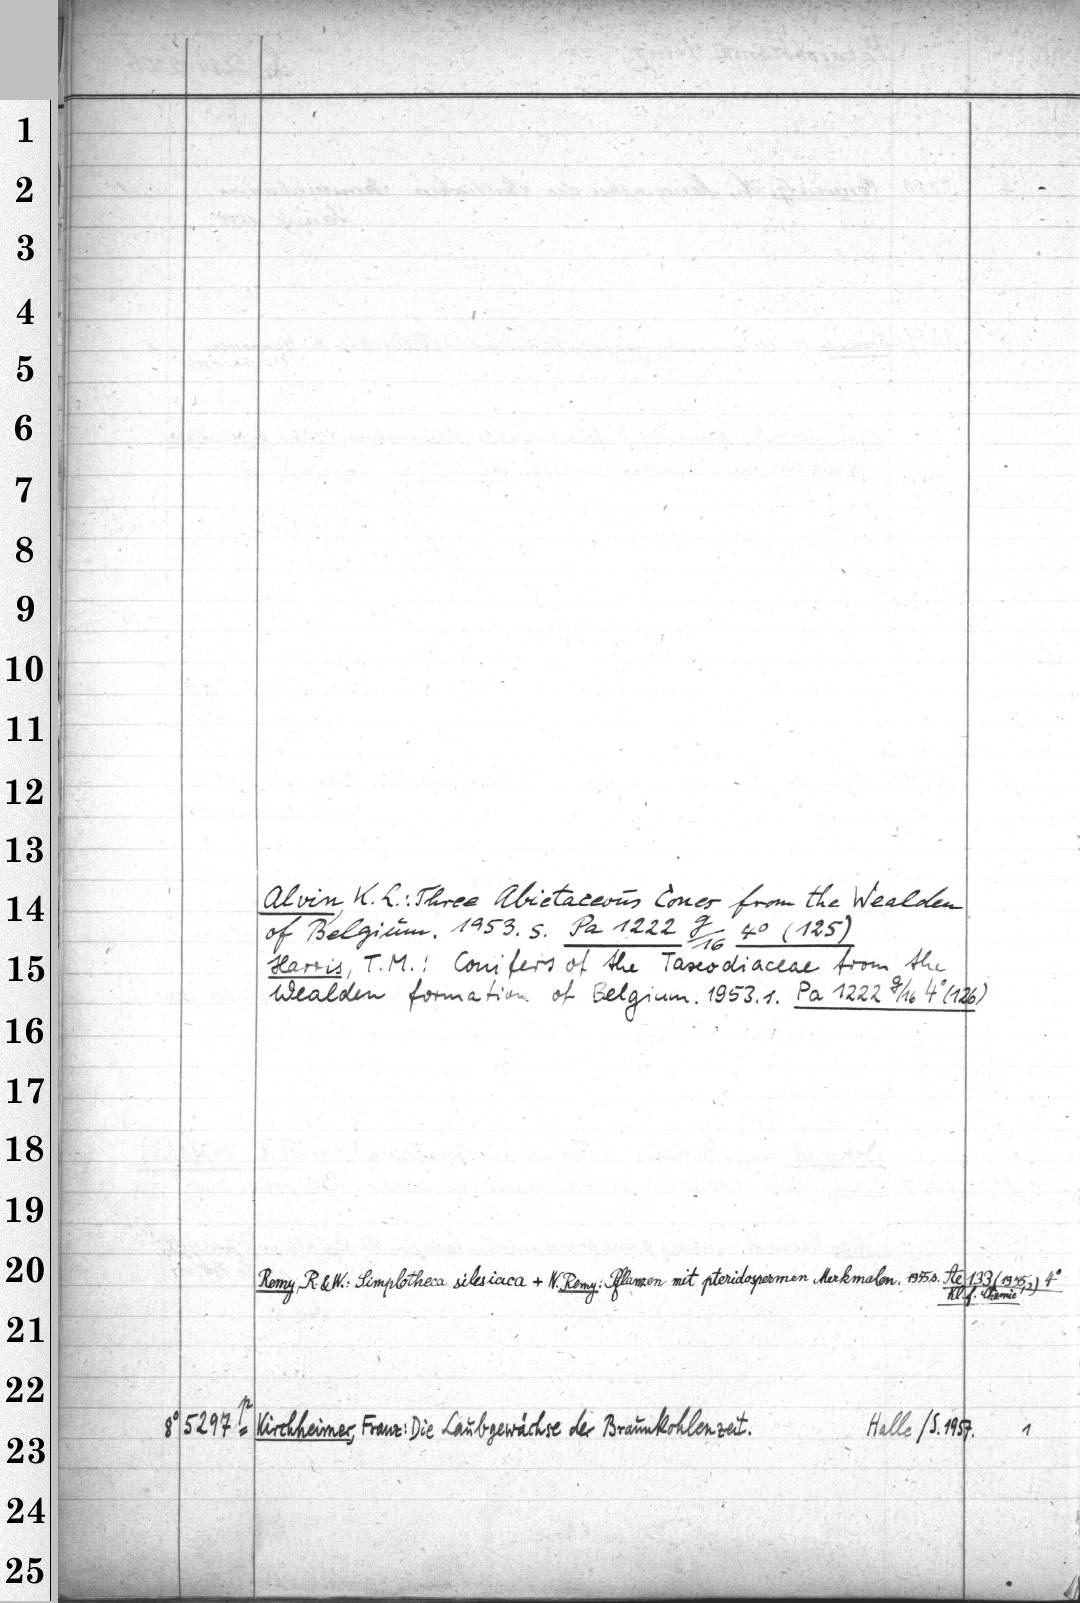 1
2
3
4
5
6
7
8
9
10
11
12
13
14
15
16
17
18
19
20
21
22
23
24
25
Alvin, K. L.: Three Abietaceous Cones from the Wealden
of Belgium. 1953. s. Pa 1222 g/16 4° (125)
Harris, T.M.: Conifers of the Taxodiaceae from the
Wealden formation of Belgium. 1953. 1. Pa 1222 g/16 4° (126)
Remy, R & W.: Simplotheca silesiaca + W. Remy: Pflanzen mit pteridospermen Merkmalen. 1955. s. Ae 133 (1955,2) 4°
Kl. f. Chemie
8° 5297 p Kirchheimer, Franz: Die Laubgewächse der Braunkohlenzeit. Halle/S. 1957. 1